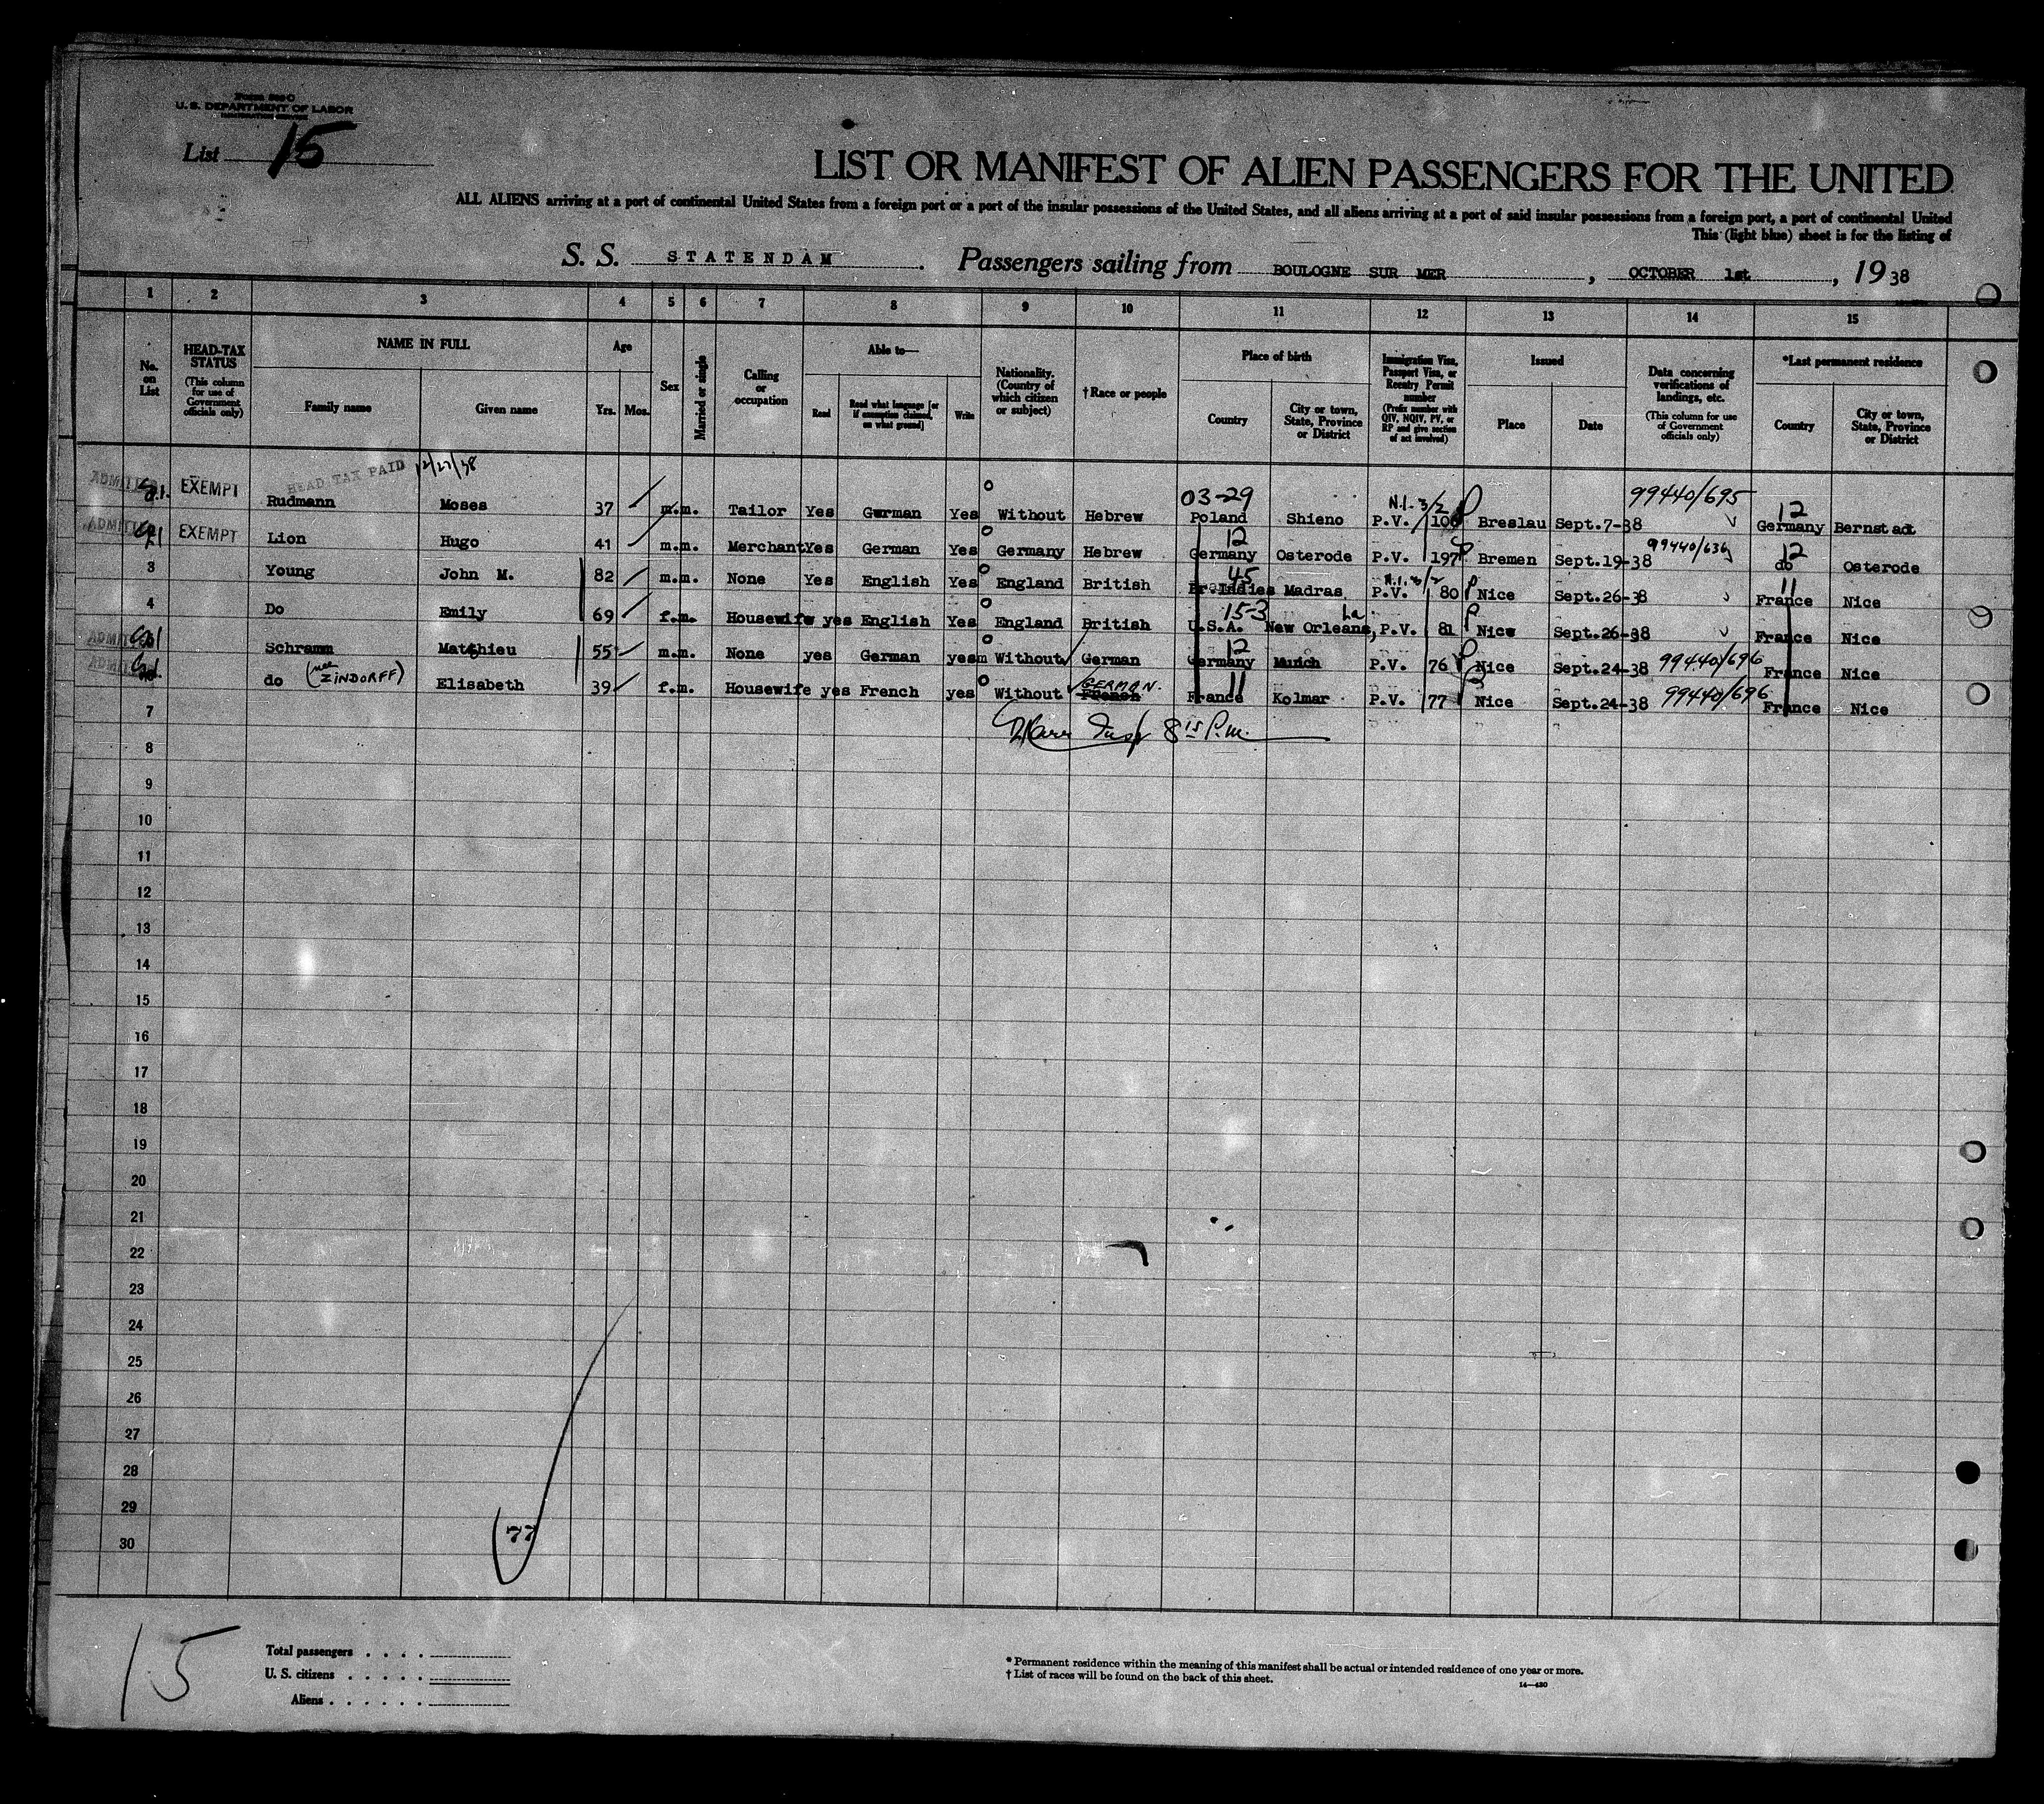 U. S. DEPARTMENT OF LABOR
List 15
LIST OR MANIFEST OF ALIEN PASSENGERS FOR THE UNITED
ALL ALIENS arriving at a port of continental United States from a foreign port or a port of the insular possessions of the United States, and all aliens arriving at a port of said insular possessions from a foreign port, a port of continental United
This (light blue) sheet is for the listing of
S. S. STATENDAM. Passengers sailing from BOULOGNE SUR MER, OCTOBER 1st, 1938
1 2 3 4 5 6 7 8 9 10 11 12 13 14 15
No. on List
HEAD-TAX STATUS (This column for use of Government officials only)
NAME IN FULL
Family name
Given name
Age
Yrs. Mos.
Sex
Married or single
Calling or occupation
Able to—
Read
Read what language [or if exemption claimed, on what ground]
Write
Nationality. (Country of which citizen or subject)
† Race or people
Place of birth
Country
City or town, State, Province or District
Immigration Visa, Passport Visa, or Reentry Permit number (Prefix number with QIV, NQIV, PV, or RP and give section of act involved)
Issued
Place
Date
Data concerning verifications of landings, etc. (This column for use of Government officials only)
*Last permanent residence
Country
City or town, State, Province or District
HEAD TAX PAID 12/27/38
03-29 N.I. 3/2 99440/695 12
ADMITTED EXEMPT Rudmann Moses 37 m. m. Tailor Yes German Yes Without Hebrew Poland Shieno P.V. Breslau Sept.7-38 Germany Bernstadt
12 99440/636 12
ADMITTED EXEMPT Lion Hugo 41 m. m. Merchant Yes German Yes Germany Hebrew Germany Osterode P.V. 197 Bremen Sept.19-38 do Osterode
45 N.I. 3/2 11
3 Young John M. 82 m. m. None Yes English Yes England British Br. Indies Madras P.V. 80 Nice Sept.26-38 France Nice
15-3 La
4 Do Emily 69 f. m. Housewife yes English Yes England British U.S.A. New Orleans, P.V. 81 Nice Sept.26-38 France Nice
12
ADMITTED Schramm Matthieu 55 m. m. None yes German yes Without German Germany Munich P.V. 76 Nice Sept.24-38 99440/696 France Nice
GERMAN. 11
ADMITTED do (nee ZINDORFF) Elisabeth 39 f. m. Housewife yes French yes Without French France Kolmar P.V. 77 Nice Sept.24-38 99440/696 France Nice
7
Insp 8 15 P.m.
8
9
10
11
12
13
14
15
16
17
18
19
20
21
22
23
24
25
26
27
28
29
77
30
15
Total passengers . . . .
U. S. citizens . . . . .
Aliens . . . . . .
* Permanent residence within the meaning of this manifest shall be actual or intended residence of one year or more.
† List of races will be found on the back of this sheet.
14—430